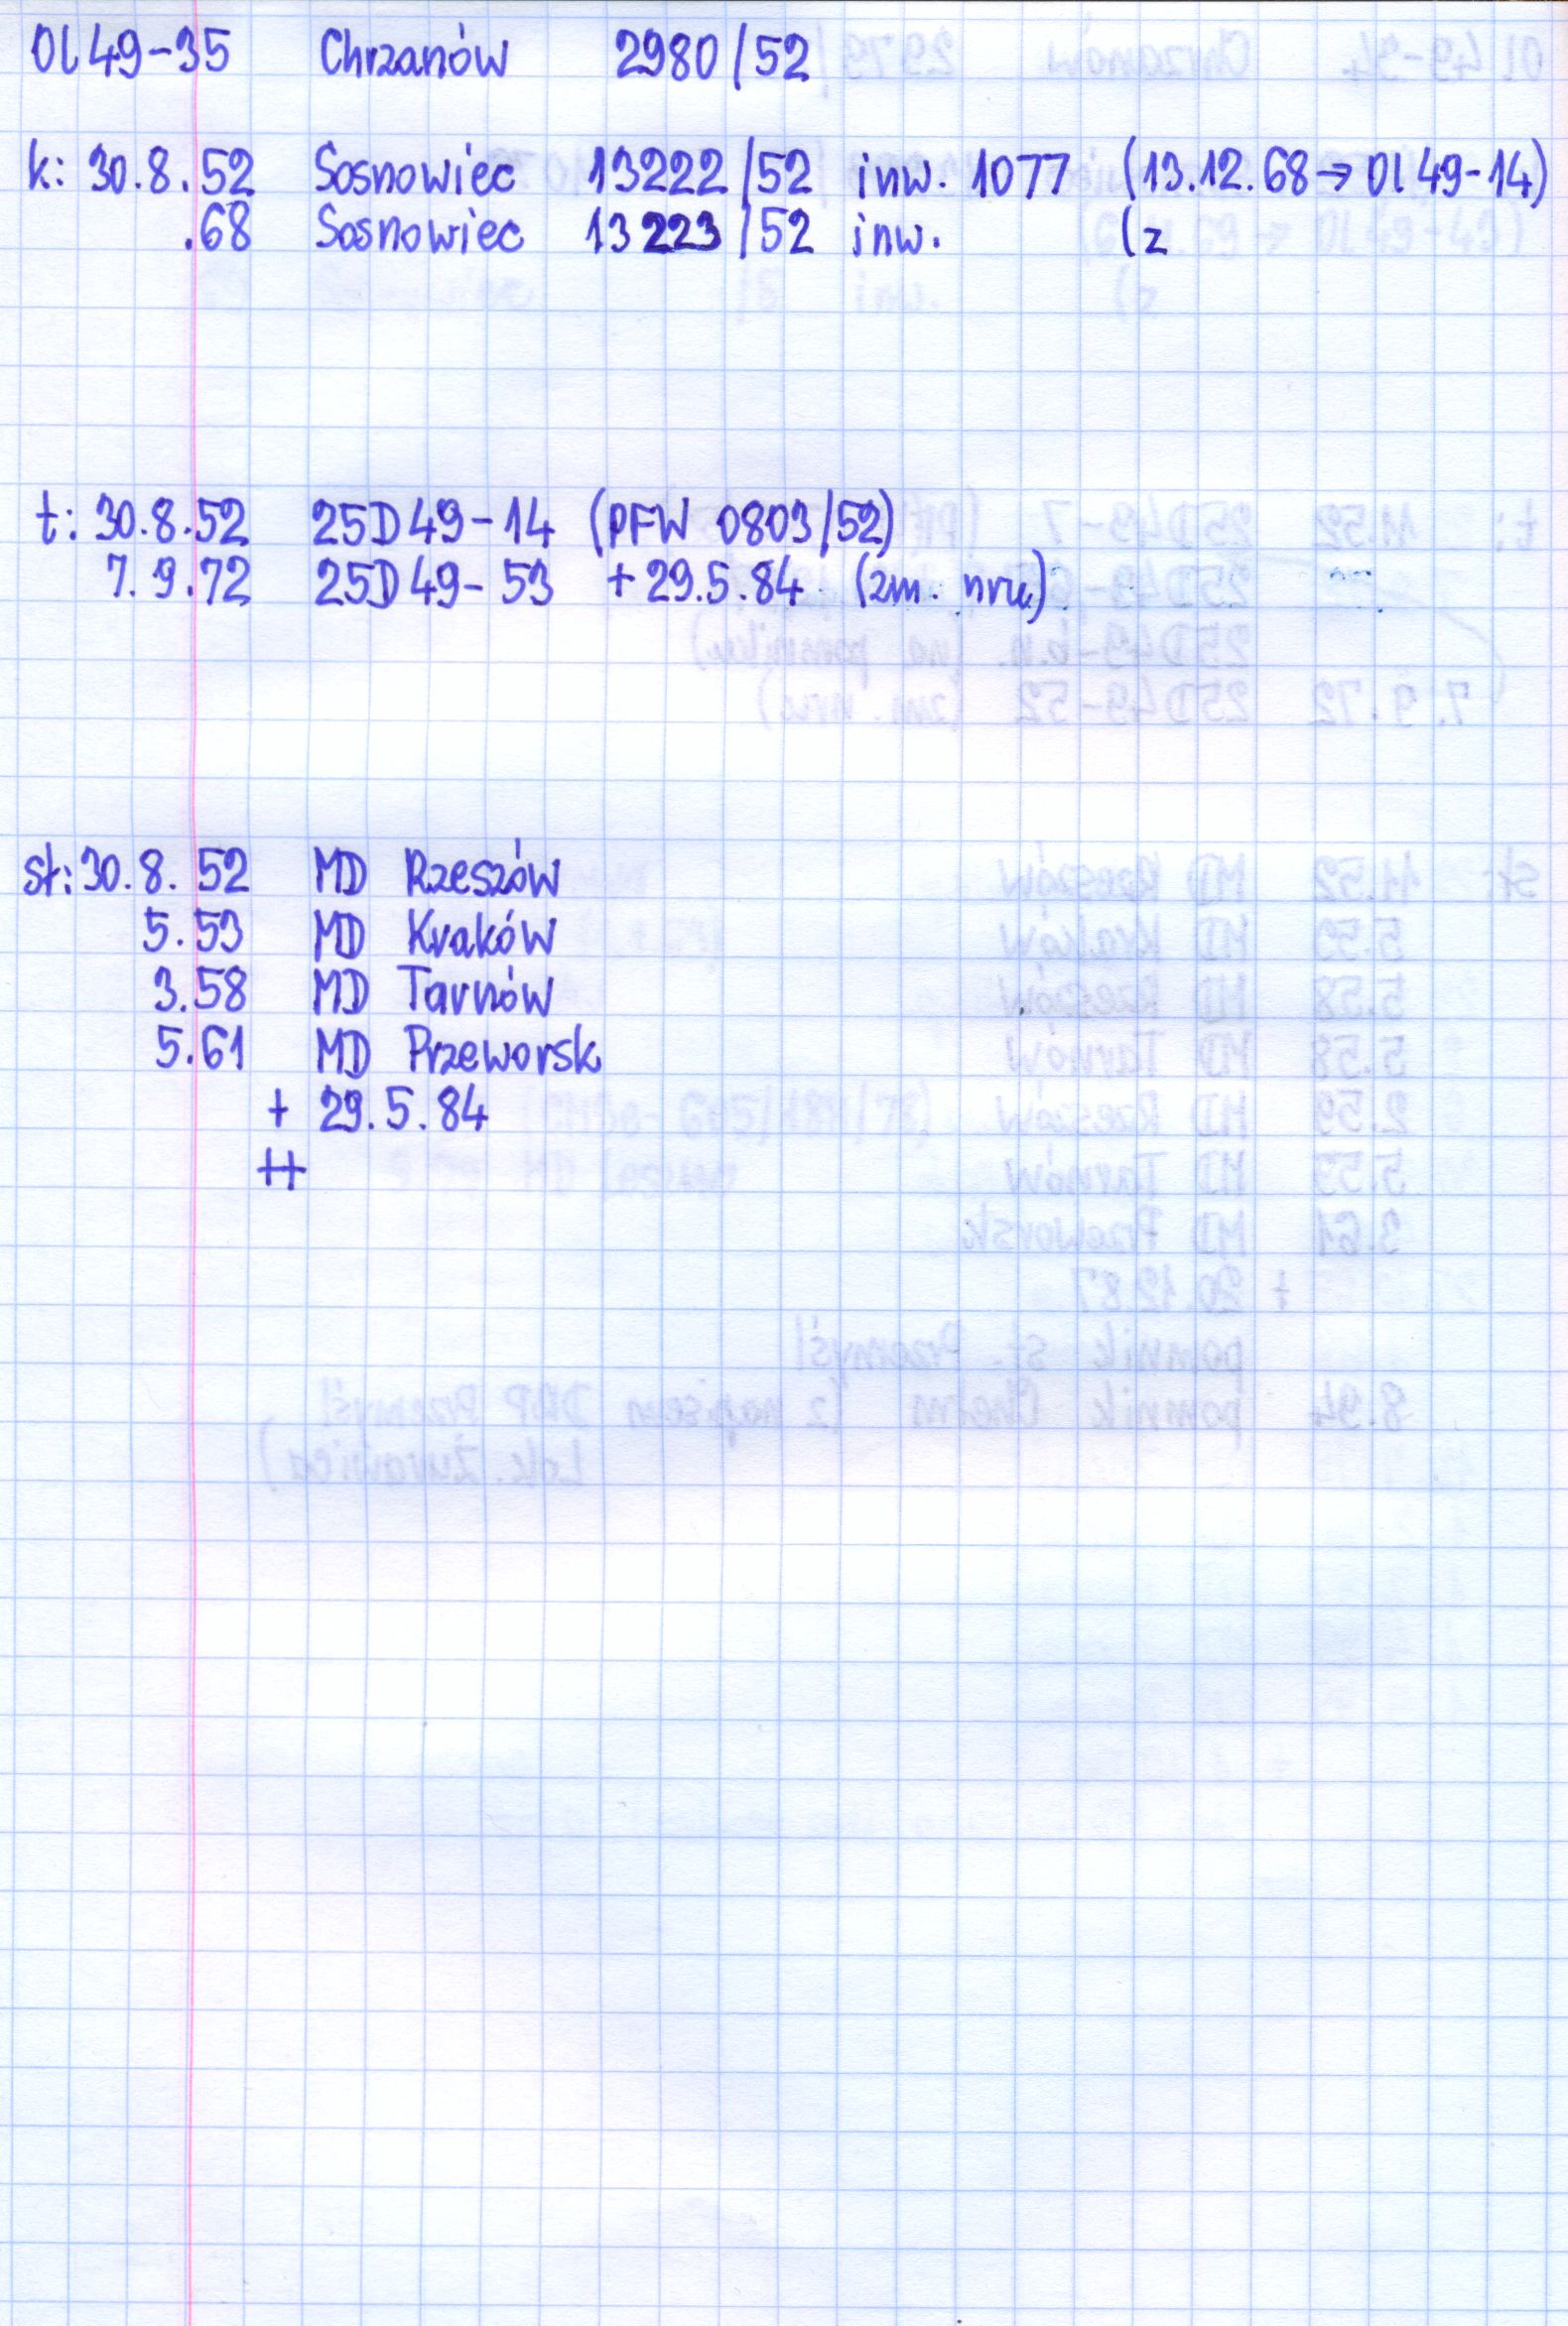 Ol49-35 Chrzanów 2980/52
k: 30.8.52 Sosnowiec 13222/52 inw. 1077 (13.12.68→Ol49-14)
.68 Sosnowiec 13223/52 inw. (z
t: 30.8.52 25D49-14 (PFW 0803/52)
7.9.72 25D49-53 +29.5.84 (zm. nru)
st: 30.8.52 MD Rzeszów
5.53 MD Kraków
3.58 MD Tarnów
5.61 MD Przeworsk
+ 29.5.84
++